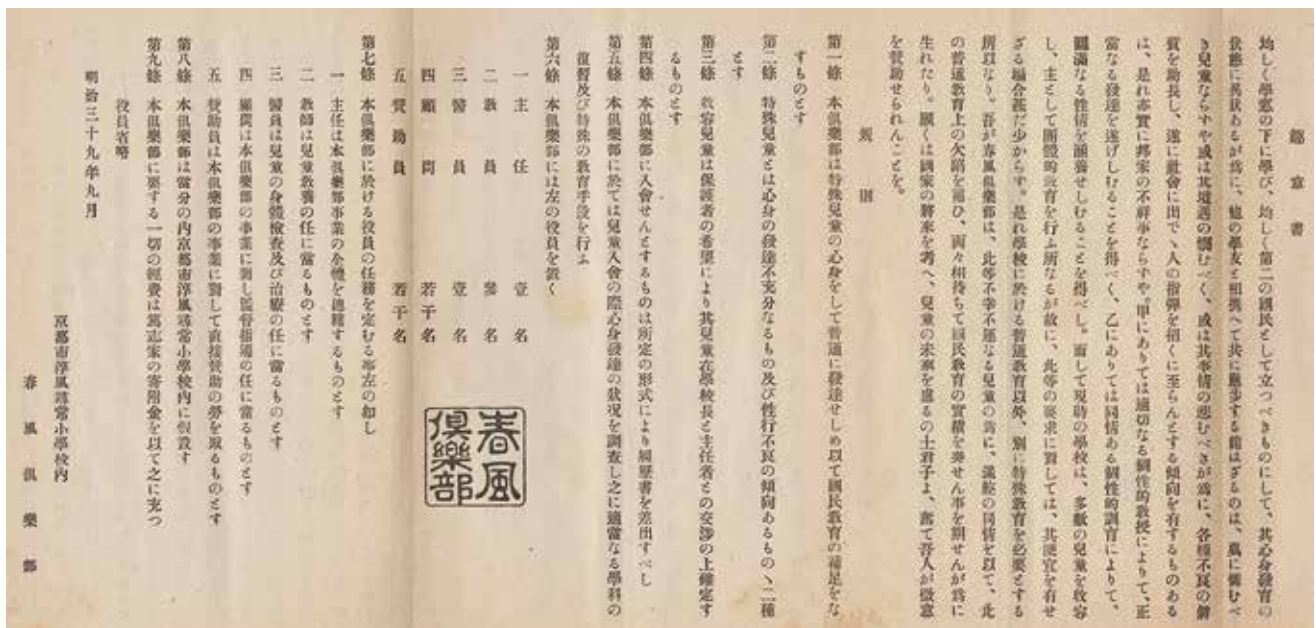 趣意書
均しく學窓の下に學び、均しく第二の國民として立つべきものにして、其心身發育の
狀態に異狀あるが爲に、他の學友と相携へて共に進步する能はざるのは、眞に憐むべ
き兒童ならずや或は其境遇の憫むべく、或は其事情の悲むべきが爲に、各種不良の僻
質を助長し、遂に社會に出でゝ人の指彈を招くに至らんとする傾向を有するものある
は、是れ亦實に邦家の不祥事ならずや。甲にありては適切なる個性的敎授によりて、正
當なる發達を遂げしむることを得べく、乙にありては同情ある個性的訓育によりて、
圓滿なる性情を涵養せしむることを得べし。而して現時の學校は、多數の兒童を收容
し、主として團體的敎育を行ふ所なるが故に、此等の要求に對しては、其便宜を有せ
ざる場合甚だ少からず。是れ學校に於ける普通敎育以外、別に特殊敎育を必要とする
所以なり。吾が春風俱樂部は、此等不幸不運なる兒童の爲に、滿腔の同情を以て、此
の普通敎育上の欠陷を補ひ、兩々相待ちて國民敎育の實績を奏せん事を期せんが爲に
生れたり。願くは國家の將來を考へ、兒童の未來を慮るの士君子よ、奮て吾人が微意
を賛助せられんことを。
規則
第一條 本俱樂部は特殊兒童の心身をして普通に發達せしめ以て國民敎育の補足をな
すものとす
第二條 特殊兒童とは心身の發達不充分なるもの及び性行不良の傾向あるものゝ二種
とす
第三條 收容兒童は保護者の希望により其兒童在學校長と主任者との交涉の上確定す
るものとす
第四條 本俱樂部に入會せんとするものは所定の形式により履歷書を差出すべし
第五條 本俱樂部に於ては兒童入會の際心身發達の狀況を調查し之に適當なる學科の
復習及び特殊の敎育手段を行ふ
第六條 本俱樂部には左の役員を置く
一 主任 壹名
二 敎員 參名
三 醫員 壹名
四 顧問 若干名
五 賛助員 若干名
春風
俱樂部
第七條 本俱樂部に於ける役員の任務を定むる事左の如し
一 主任は本俱樂部事業の全體を總轄するものとす
二 敎師は兒童敎養の任に當るものとす
三 醫員は兒童の身體檢查及び治療の任に當るものとす
四 顧問は本俱樂部の事業に對し監督指導の任に當るものとす
五 賛助員は本俱樂部の事業に對して直接賛助の勞を取るものとす
第八條 本俱樂部は當分の內京都市淳風尋常小學校內に假設す
第九條 本俱樂部に要する一切の經費は篤志家の寄附金を以て之に充つ
役員省略
明治三十九年九月
京都市淳風尋常小學校內
春風俱樂部